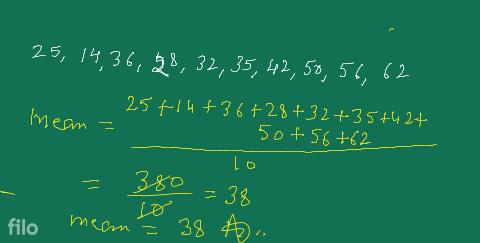 25, 14, 36, 28, 32, 35, 42, 50, 56, 62
mean = 25+14+36+28+32+35+42+
50+56+62
10
= 380/10 = 38
mean = 38
filo